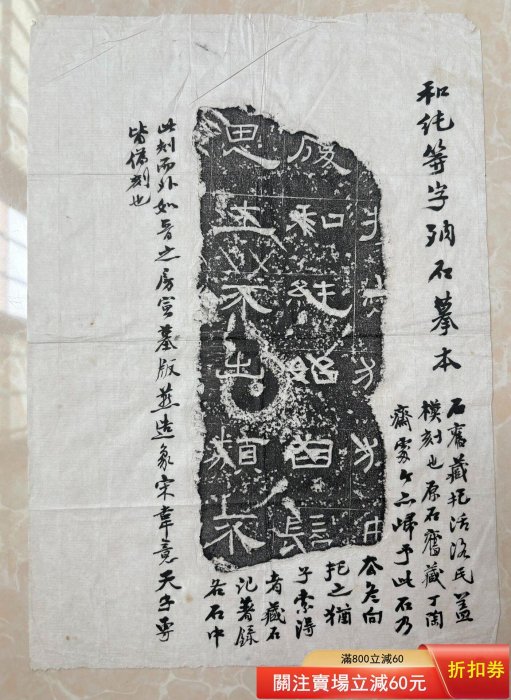 和純等字殘石摹本
石舊藏托活洛氏蓋
模刻也原石舊藏丁陶
齋家今亦歸予此石乃
向
托之猶
予索得
者藏石
記著錄
各石中
和純
思不出類
此刻而外如晉之房宣墓版燕造象宋韋意天子專
皆偽刻也
滿800立減60
關注賣場立減60元
折扣券